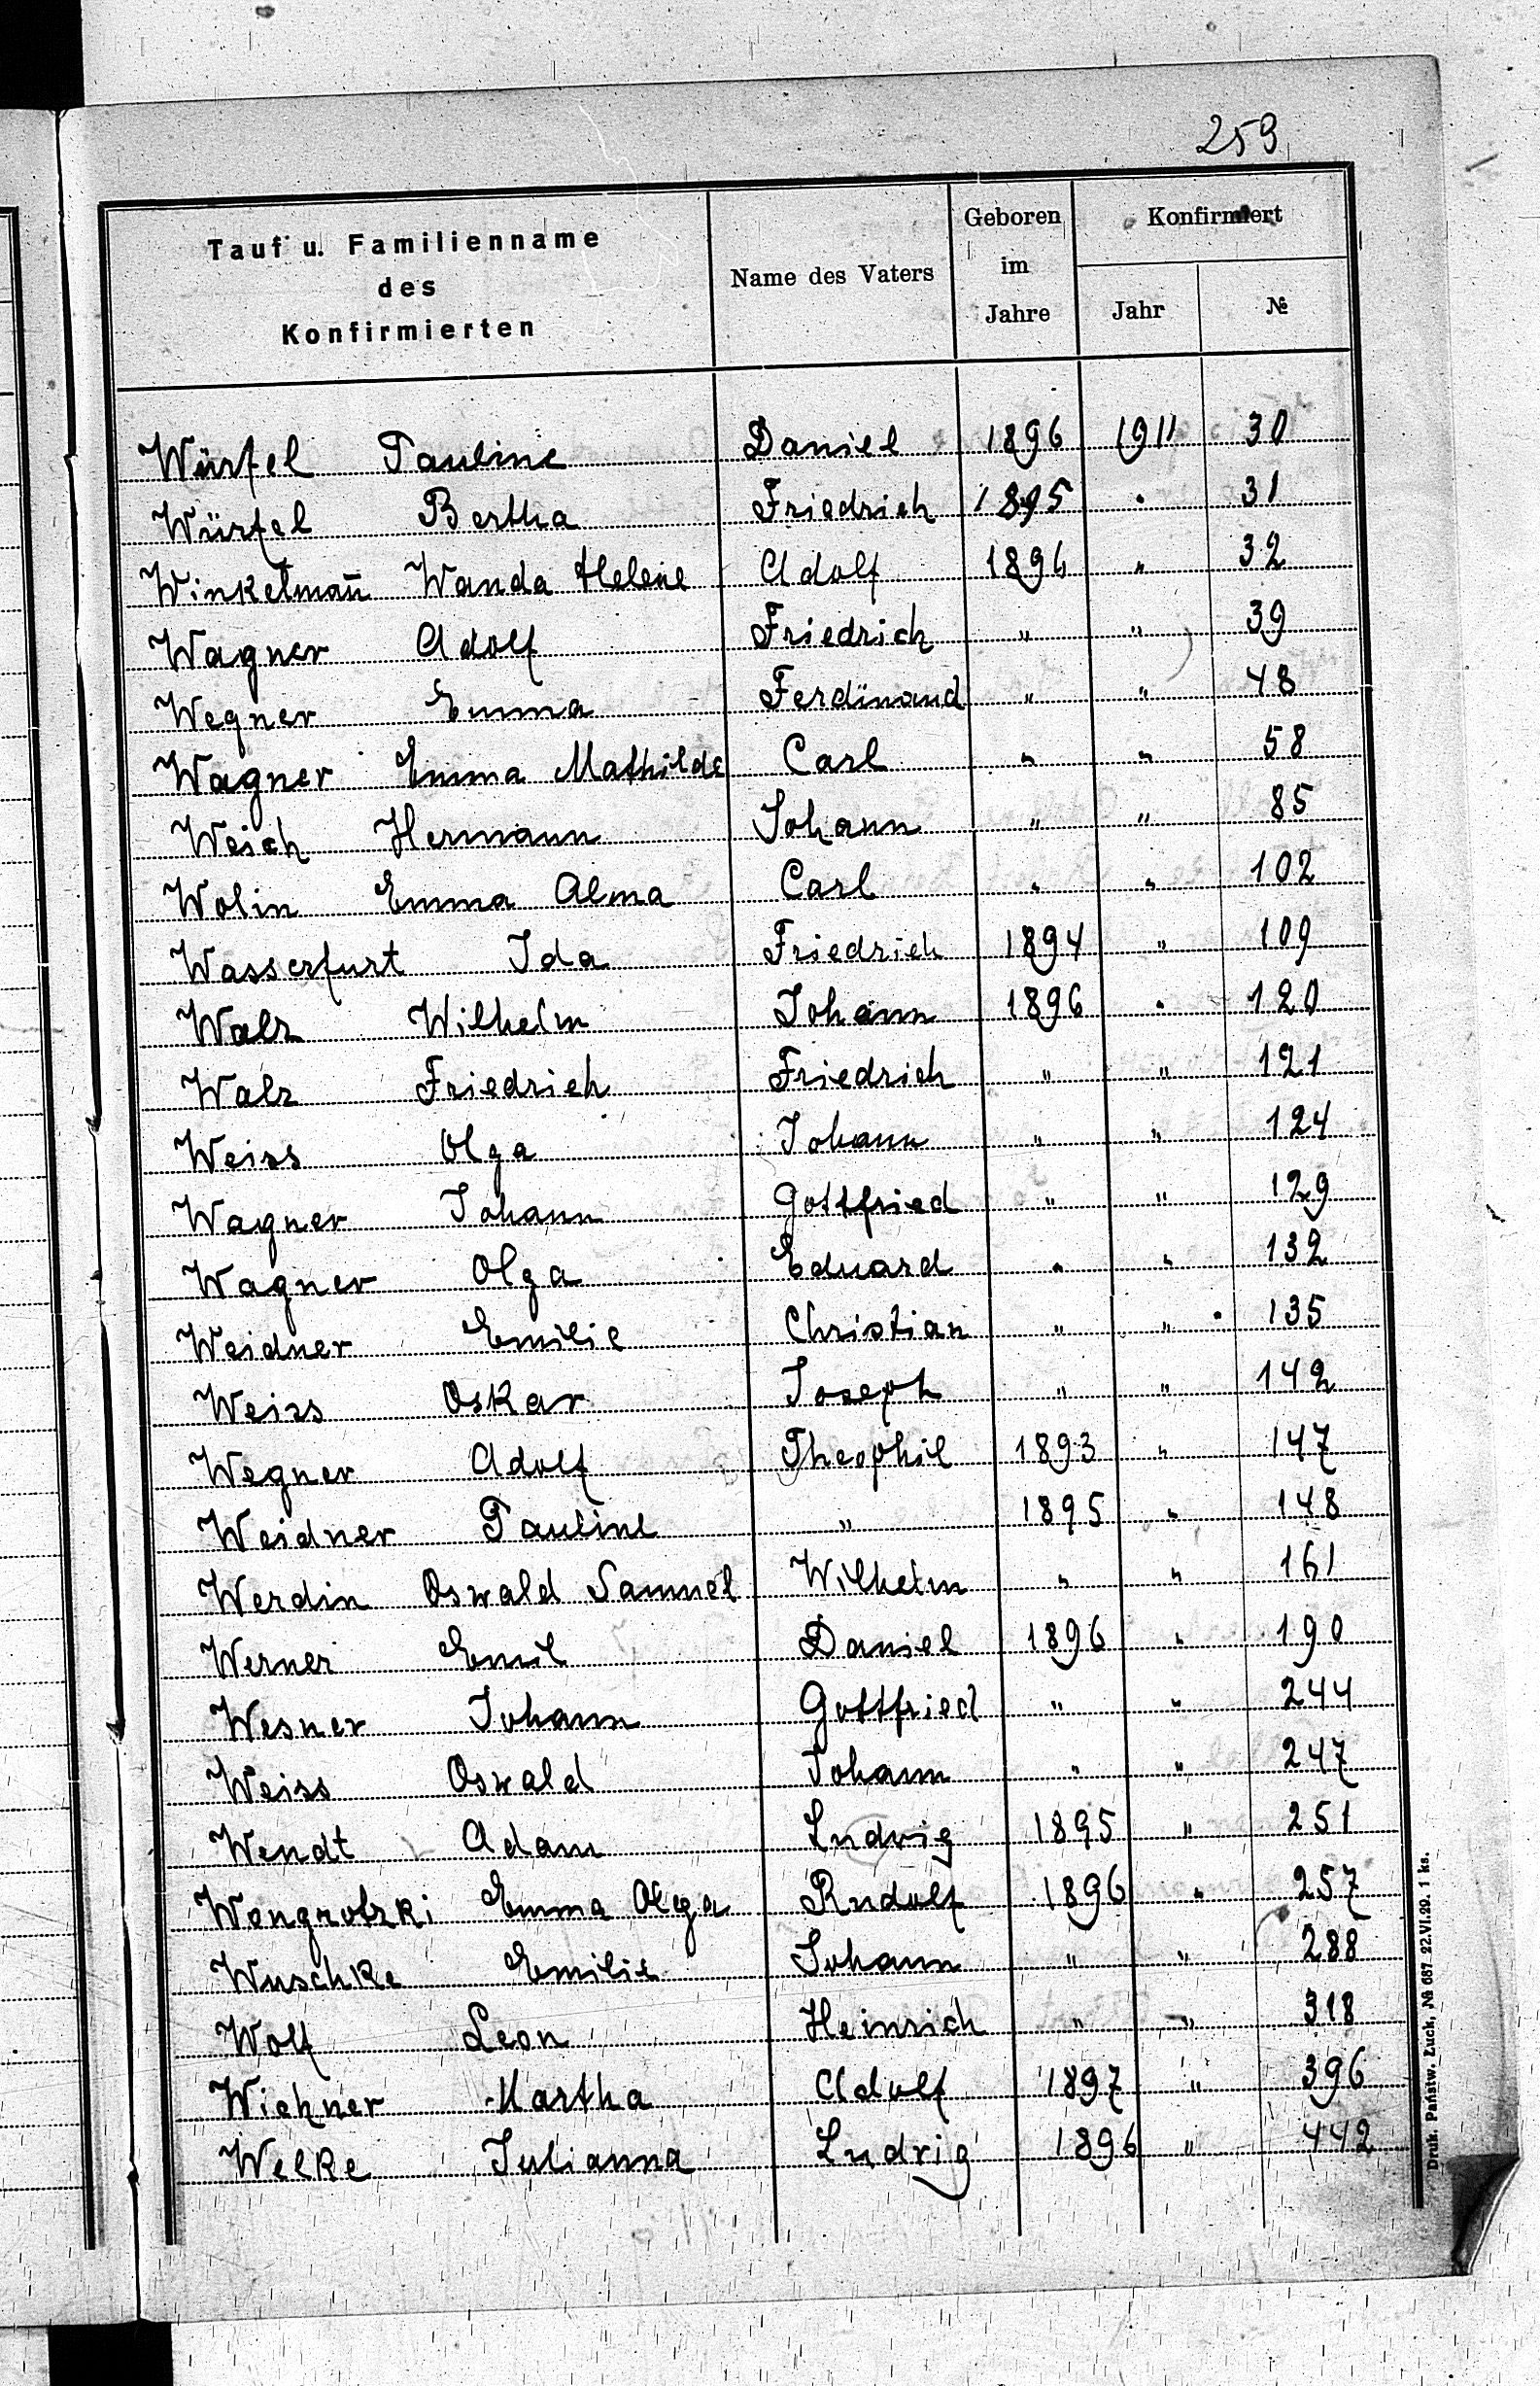 259
Tauf u. Familienname des Konfirmierten | Name des Vaters | Geboren im Jahre | Konfirmiert Jahr | №
Würfel Pauline Daniel 1896 1911 30
Würfel Bertha Friedrich 1895 " 31
Winkelman̄ Wanda Helene Adolf 1896 " 32
Wagner Adolf Friedrich " " 39
Wegner Emma Ferdinand " " 48
Wagner Emma Mathilde Carl " " 58
Weich Hermann Johann " " 85
Wolin Emma Alma Carl " " 102
Wasserfurt Ida Friedrich 1894 " 109
Walz Wilhelm Johann 1896 " 120
Walz Friedrich Friedrich " " 121
Weiss Olga Johann " " 124
Wagner Johann Gottfried " " 129
Wagner Olga Eduard " " 132
Weidner Emilie Christian " " 135
Weiss Oskar Joseph " " 142
Wegner Adolf Theophil 1893 " 147
Weidner Pauline " 1895 " 148
Werdin Oswald Samuel Wilhelm " " 161
Werner Emil Daniel 1896 " 190
Wesner Johann Gottfried " " 244
Weiss Oswald Johann " " 247
Wendt Adam Ludwig 1895 " 251
Wengrotzki Emma Olga Rudolf 1896 " 257
Wuschke Emilie Johann " " 288
Wolf Leon Heinrich " " 318
Wichner Martha Adolf 1897 " 396
Welke Julianna Ludwig 1896 " 442
Druk. Państw. Łuck, № 687 22.VI.29. 1 ks.